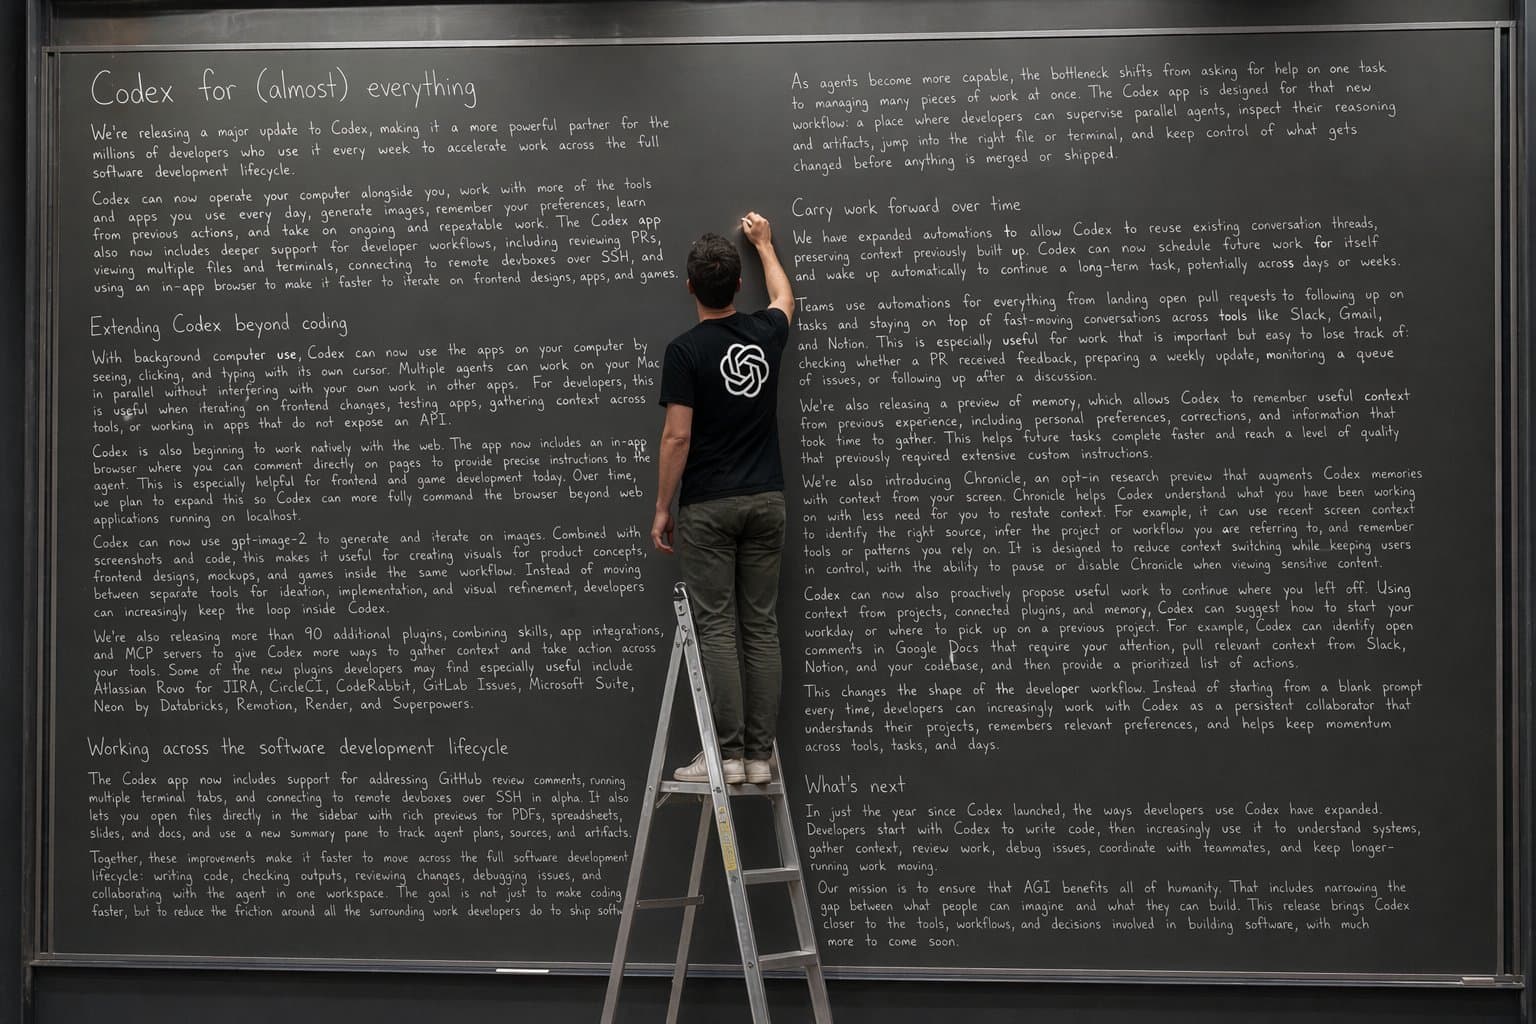 Codex for (almost) everything
We're releasing a major update to Codex, making it a more powerful partner for the
millions of developers who use it every week to accelerate work across the full
software development lifecycle.
Codex can now operate your computer alongside you, work with more of the tools
and apps you use every day, generate images, remember your preferences, learn
from previous actions, and take on ongoing and repeatable work. The Codex app
also now includes deeper support for developer workflows, including reviewing PRs,
viewing multiple files and terminals, connecting to remote devboxes over SSH, and
using an in-app browser to make it faster to iterate on frontend designs, apps, and games.
Extending Codex beyond coding
With background computer use, Codex can now use the apps on your computer by
seeing, clicking, and typing with its own cursor. Multiple agents can work on your Mac
in parallel without interfering with your own work in other apps. For developers, this
is useful when iterating on frontend changes, testing apps, gathering context across
tools, or working in apps that do not expose an API.
Codex is also beginning to work natively with the web. The app now includes an in-app
browser where you can comment directly on pages to provide precise instructions to the
agent. This is especially helpful for frontend and game development today. Over time,
we plan to expand this so Codex can more fully command the browser beyond web
applications running on localhost.
Codex can now use gpt-image-2 to generate and iterate on images. Combined with
screenshots and code, this makes it useful for creating visuals for product concepts,
frontend designs, mockups, and games inside the same workflow. Instead of moving
between separate tools for ideation, implementation, and visual refinement, developers
can increasingly keep the loop inside Codex.
We're also releasing more than 90 additional plugins, combining skills, app integrations,
and MCP servers to give Codex more ways to gather context and take action across
your tools. Some of the new plugins developers may find especially useful include
Atlassian Rovo for JIRA, CircleCI, CodeRabbit, GitLab Issues, Microsoft Suite,
Neon by Databricks, Remotion, Render, and Superpowers.
Working across the software development lifecycle
The Codex app now includes support for addressing GitHub review comments, running
multiple terminal tabs, and connecting to remote devboxes over SSH in alpha. It also
lets you open files directly in the sidebar with rich previews for PDFs, spreadsheets,
slides, and docs, and use a new summary pane to track agent plans, sources, and artifacts.
Together, these improvements make it faster to move across the full software development
lifecycle: writing code, checking outputs, reviewing changes, debugging issues, and
collaborating with the agent in one workspace. The goal is not just to make coding
faster, but to reduce the friction around all the surrounding work developers do to ship
As agents become more capable, the bottleneck shifts from asking for help on one task
to managing many pieces of work at once. The Codex app is designed for that new
workflow: a place where developers can supervise parallel agents, inspect their reasoning
and artifacts, jump into the right file or terminal, and keep control of what gets
changed before anything is merged or shipped.
Carry work forward over time
We have expanded automations to allow Codex to reuse existing conversation threads,
preserving context previously built up. Codex can now schedule future work for itself
and wake up automatically to continue a long-term task, potentially across days or weeks.
Teams use automations for everything from landing open pull requests to following up on
tasks and staying on top of fast-moving conversations across tools like Slack, Gmail,
and Notion. This is especially useful for work that is important but easy to lose track of:
checking whether a PR received feedback, preparing a weekly update, monitoring a queue
of issues, or following up after a discussion.
We're also releasing a preview of memory, which allows Codex to remember useful context
from previous experience, including personal preferences, corrections, and information that
took time to gather. This helps future tasks complete faster and reach a level of quality
that previously required extensive custom instructions.
We're also introducing Chronicle, an opt-in research preview that augments Codex memories
with context from your screen. Chronicle helps Codex understand what you have been working
on with less need for you to restate context. For example, it can use recent screen context
to identify the right source, infer the project or workflow you are referring to, and remember
tools or patterns you rely on. It is designed to reduce context switching while keeping users
in control, with the ability to pause or disable Chronicle when viewing sensitive content.
Codex can now also proactively propose useful work to continue where you left off. Using
context from projects, connected plugins, and memory, Codex can suggest how to start your
workday or where to pick up on a previous project. For example, Codex can identify open
comments in Google Docs that require your attention, pull relevant context from Slack,
Notion, and your codebase, and then provide a prioritized list of actions.
This changes the shape of the developer workflow. Instead of starting from a blank prompt
every time, developers can increasingly work with Codex as a persistent collaborator that
understands their projects, remembers relevant preferences, and helps keep momentum
across tools, tasks, and days.
What's next
In just the year since Codex launched, the ways developers use Codex have expanded.
Developers start with Codex to write code, then increasingly use it to understand systems,
gather context, review work, debug issues, coordinate with teammates, and keep longer-
running work moving.
Our mission is to ensure that AGI benefits all of humanity. That includes narrowing the
gap between what people can imagine and what they can build. This release brings Codex
closer to the tools, workflows, and decisions involved in building software, with much
more to come soon.